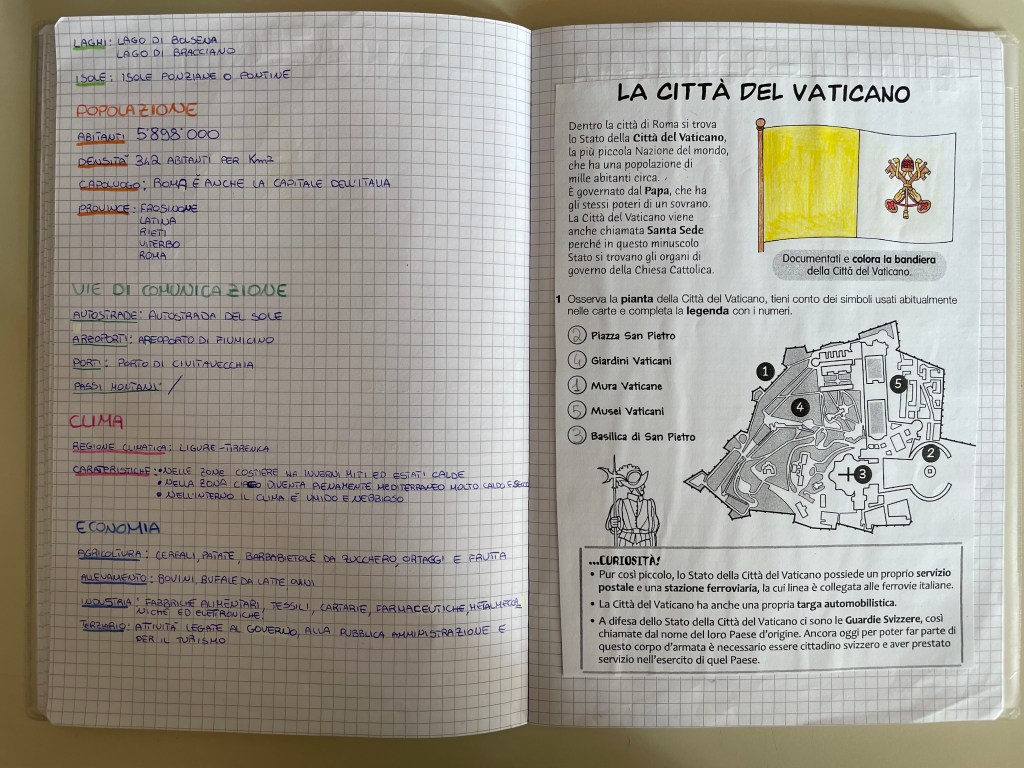 LAGHI: LAGO DI BOLSENA
LAGO DI BRACCIANO
ISOLE: ISOLE PONZIANE O PONTINE
POPOLAZIONE
ABITANTI 5'898'000
DENSITÀ 342 ABITANTI PER Km2
CAPOLUOGO: ROMA È ANCHE LA CAPITALE DELL'ITALIA
PROVINCE: FROSINONE
LATINA
RIETI
VITERBO
ROMA
VIE DI COMUNICAZIONE
AUTOSTRADE: AUTOSTRADA DEL SOLE
AREOPORTI: AREOPORTO DI FIUMICINO
PORTI: PORTO DI CIVITAVECCHIA
PASSI MONTANI: /
CLIMA
REGIONE CLIMATICA: LIGURE-TIRRENICA
CARATERISTICHE: • NELLE ZONE COSTIERE HA INVERNI MITI ED ESTATI CALDE
• NELLA ZONA DIVENTA PIENAMENTE MEDITERRANEO MOLTO CALDO E SECCO
• NELL'INTERNO IL CLIMA È UMIDO E NEBBIOSO
ECONOMIA
AGRICOLTURA: CEREALI, PATATE, BARBABIETOLE DA ZUCCHERO, ORTAGGI E FRUTTA
ALLEVAMENTO: BOVINI, BUFALE DA LATTE, OVINI
INDUSTRIA: FABBRICHE ALIMENTARI, TESSILI, CARTARIE, FARMACEUTICHE, METALMECCA
NICHE ED ELETRONICHE.
TERZIARIO: ATTIVITÀ LEGATE AL GOVERNO, ALLA PUBBLICA AMMINISTRAZIONE E
PER IL TURISMO
LA CITTÀ DEL VATICANO
Dentro la città di Roma si trova
lo Stato della Città del Vaticano,
la più piccola Nazione del mondo,
che ha una popolazione di
mille abitanti circa.
È governato dal Papa, che ha
gli stessi poteri di un sovrano.
La Città del Vaticano viene
anche chiamata Santa Sede
perché in questo minuscolo
Stato si trovano gli organi di
governo della Chiesa Cattolica.
Documentati e colora la bandiera
della Città del Vaticano.
1 Osserva la pianta della Città del Vaticano, tieni conto dei simboli usati abitualmente
nelle carte e completa la legenda con i numeri.
2 Piazza San Pietro
4 Giardini Vaticani
1 Mura Vaticane
5 Musei Vaticani
3 Basilica di San Pietro
1
5
4
2
3
...CURIOSITÀ!
• Pur così piccolo, lo Stato della Città del Vaticano possiede un proprio servizio
postale e una stazione ferroviaria, la cui linea è collegata alle ferrovie italiane.
• La Città del Vaticano ha anche una propria targa automobilistica.
• A difesa dello Stato della Città del Vaticano ci sono le Guardie Svizzere, così
chiamate dal nome del loro Paese d'origine. Ancora oggi per poter far parte di
questo corpo d'armata è necessario essere cittadino svizzero e aver prestato
servizio nell'esercito di quel Paese.